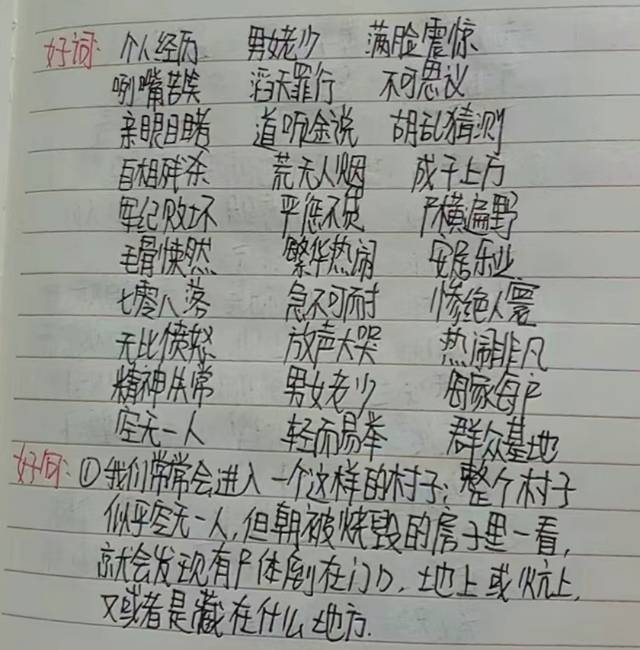 好词: 个人经历 男女老少 满脸震惊
咧嘴苦笑 滔天罪行 不可思议
亲眼目睹 道听途说 胡乱猜测
自相残杀 荒无人烟 成千上万
军纪败坏 严惩不贷 尸横遍野
毛骨悚然 繁华热闹 安居乐业
七零八落 急不可耐 惨绝人寰
无比愤怒 放声大哭 热闹非凡
精神失常 男女老少 每家每户
空无一人 轻而易举 群众墓地
好句: ①我们常常会进入一个这样的村子; 整个村子
似乎空无一人, 但朝被烧毁的房子里一看,
就会发现有尸体倒在门口, 地上或炕上,
又或者是藏在什么地方.